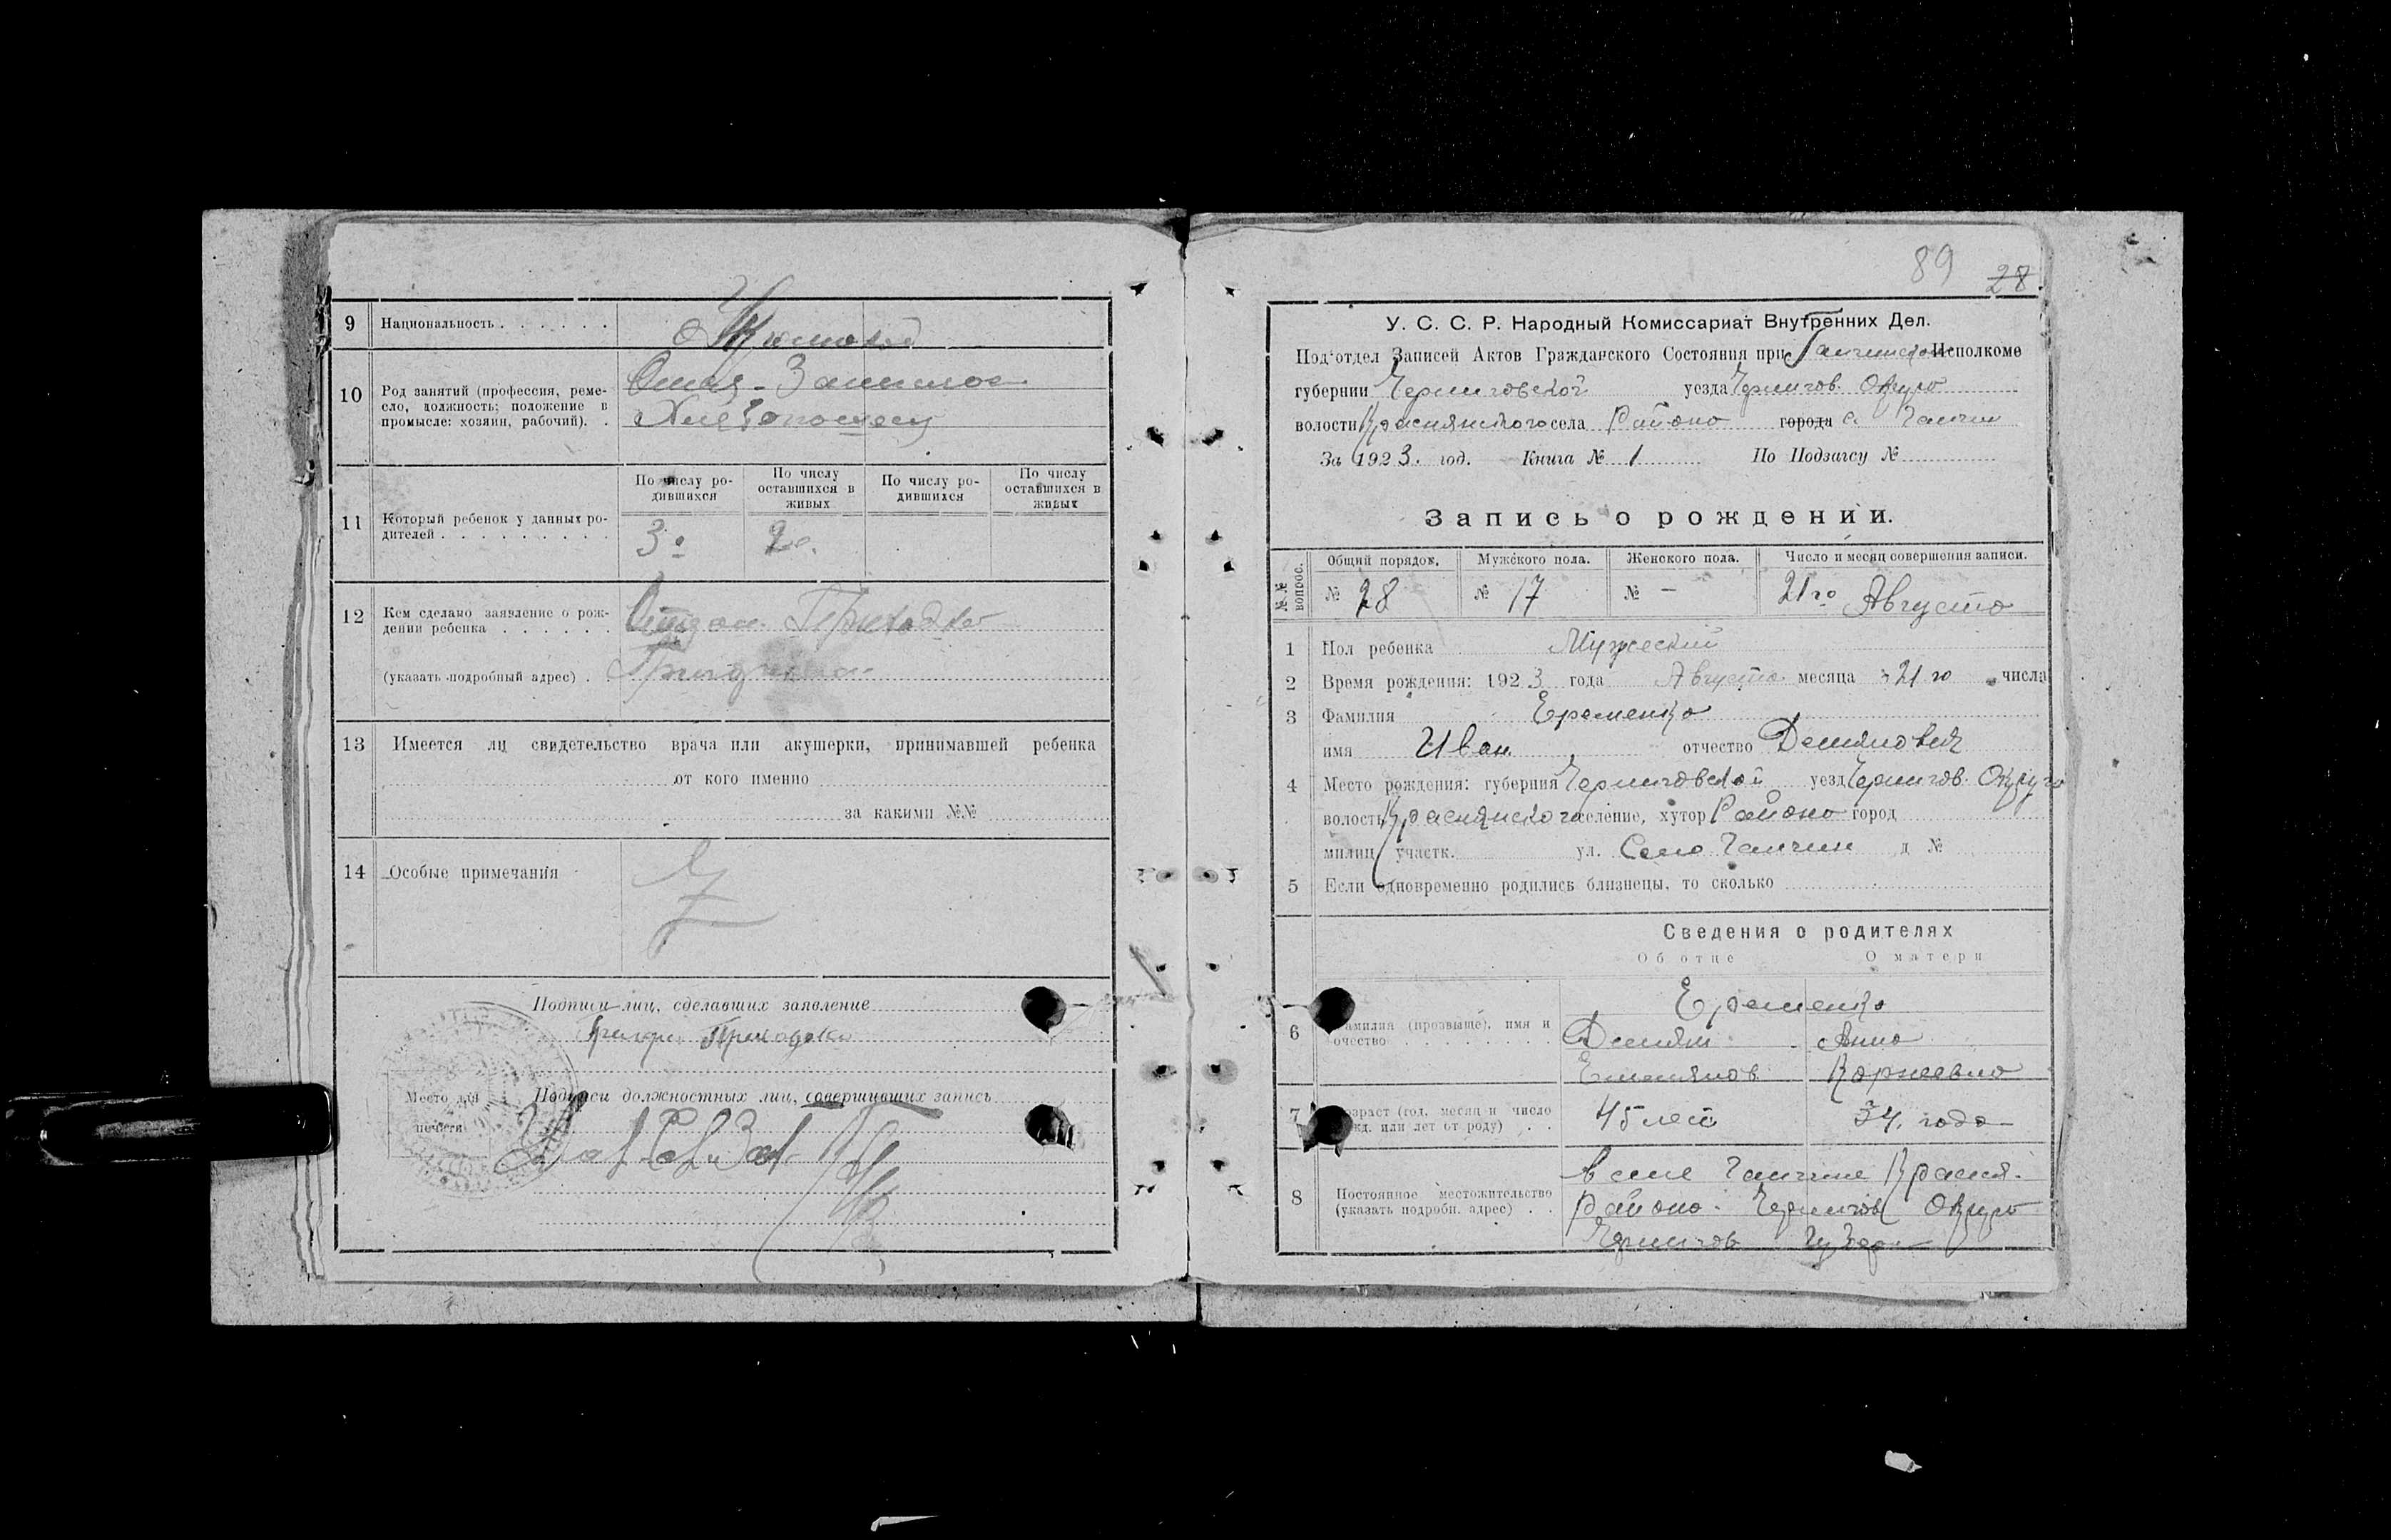 9 Национальность . . . . . .
10 Род занятий (профессия, реме-
сло, должность; положение в
промысле: хозяин, рабочий). .
Отец - Занимает
Хлебопашец
11 Который ребенок у данных ро-
дителей . . . . . . . . .
По числу ро-
дившихся
По числу
оставшихся в
живых
По числу ро-
дившихся
По числу
оставшихся в
живых
3й 2й
12 Кем сделано заявление о рож-
дении ребенка . . . . . .
Приходько
(указать подробный адрес) . .
13 Имеется ли свидетельство врача или акушерки, принимавшей ребенка
от кого именно
за какими №№
14 Особые примечания
Подписи лиц, сделавших заявление
Приходько
Место для
печати
Подписи должностных лиц, совершивших запись
89 28
У. С. С. Р. Народный Комиссариат Внутренних Дел.
Под'отдел Записей Актов Гражданского Состояния при Исполкоме
губернии Черниговской уезда Чернигов. Округа
волости Краснянского села Района города с.
За 1923. год. Книга № 1 По Подзагсу №
Запись о рождении.
№№ вопрос.
Общий порядок. Мужского пола. Женского пола. Число и месяц совершения записи.
№ 28 № 17 № — 21го Августа
1 Пол ребенка Мужеский
2 Время рождения: 1923 года Августа месяца 21го числа
3 Фамилия Еременко
имя Иван отчество Демянович
4 Место рождения: губерния Черниговской уезд Чернигов. Округа
волость Краснянского селение, хутор Района город
милиц. участк. ул. Село д №
5 Если одновременно родились близнецы, то сколько
Сведения о родителях
Об отце О матери
6 Фамилия (прозвище), имя и
отчество . . . . . . . .
Еременко
Демян Анна
Корнеевна
7 Возраст (год, месяц и число
рожд. или лет от роду) . .
45 лет 34. года
8 Постоянное местожительство
(указать подробн. адрес) . .
в селе Краснян.
Района. Чернигов Округа
Чернигов Губерн